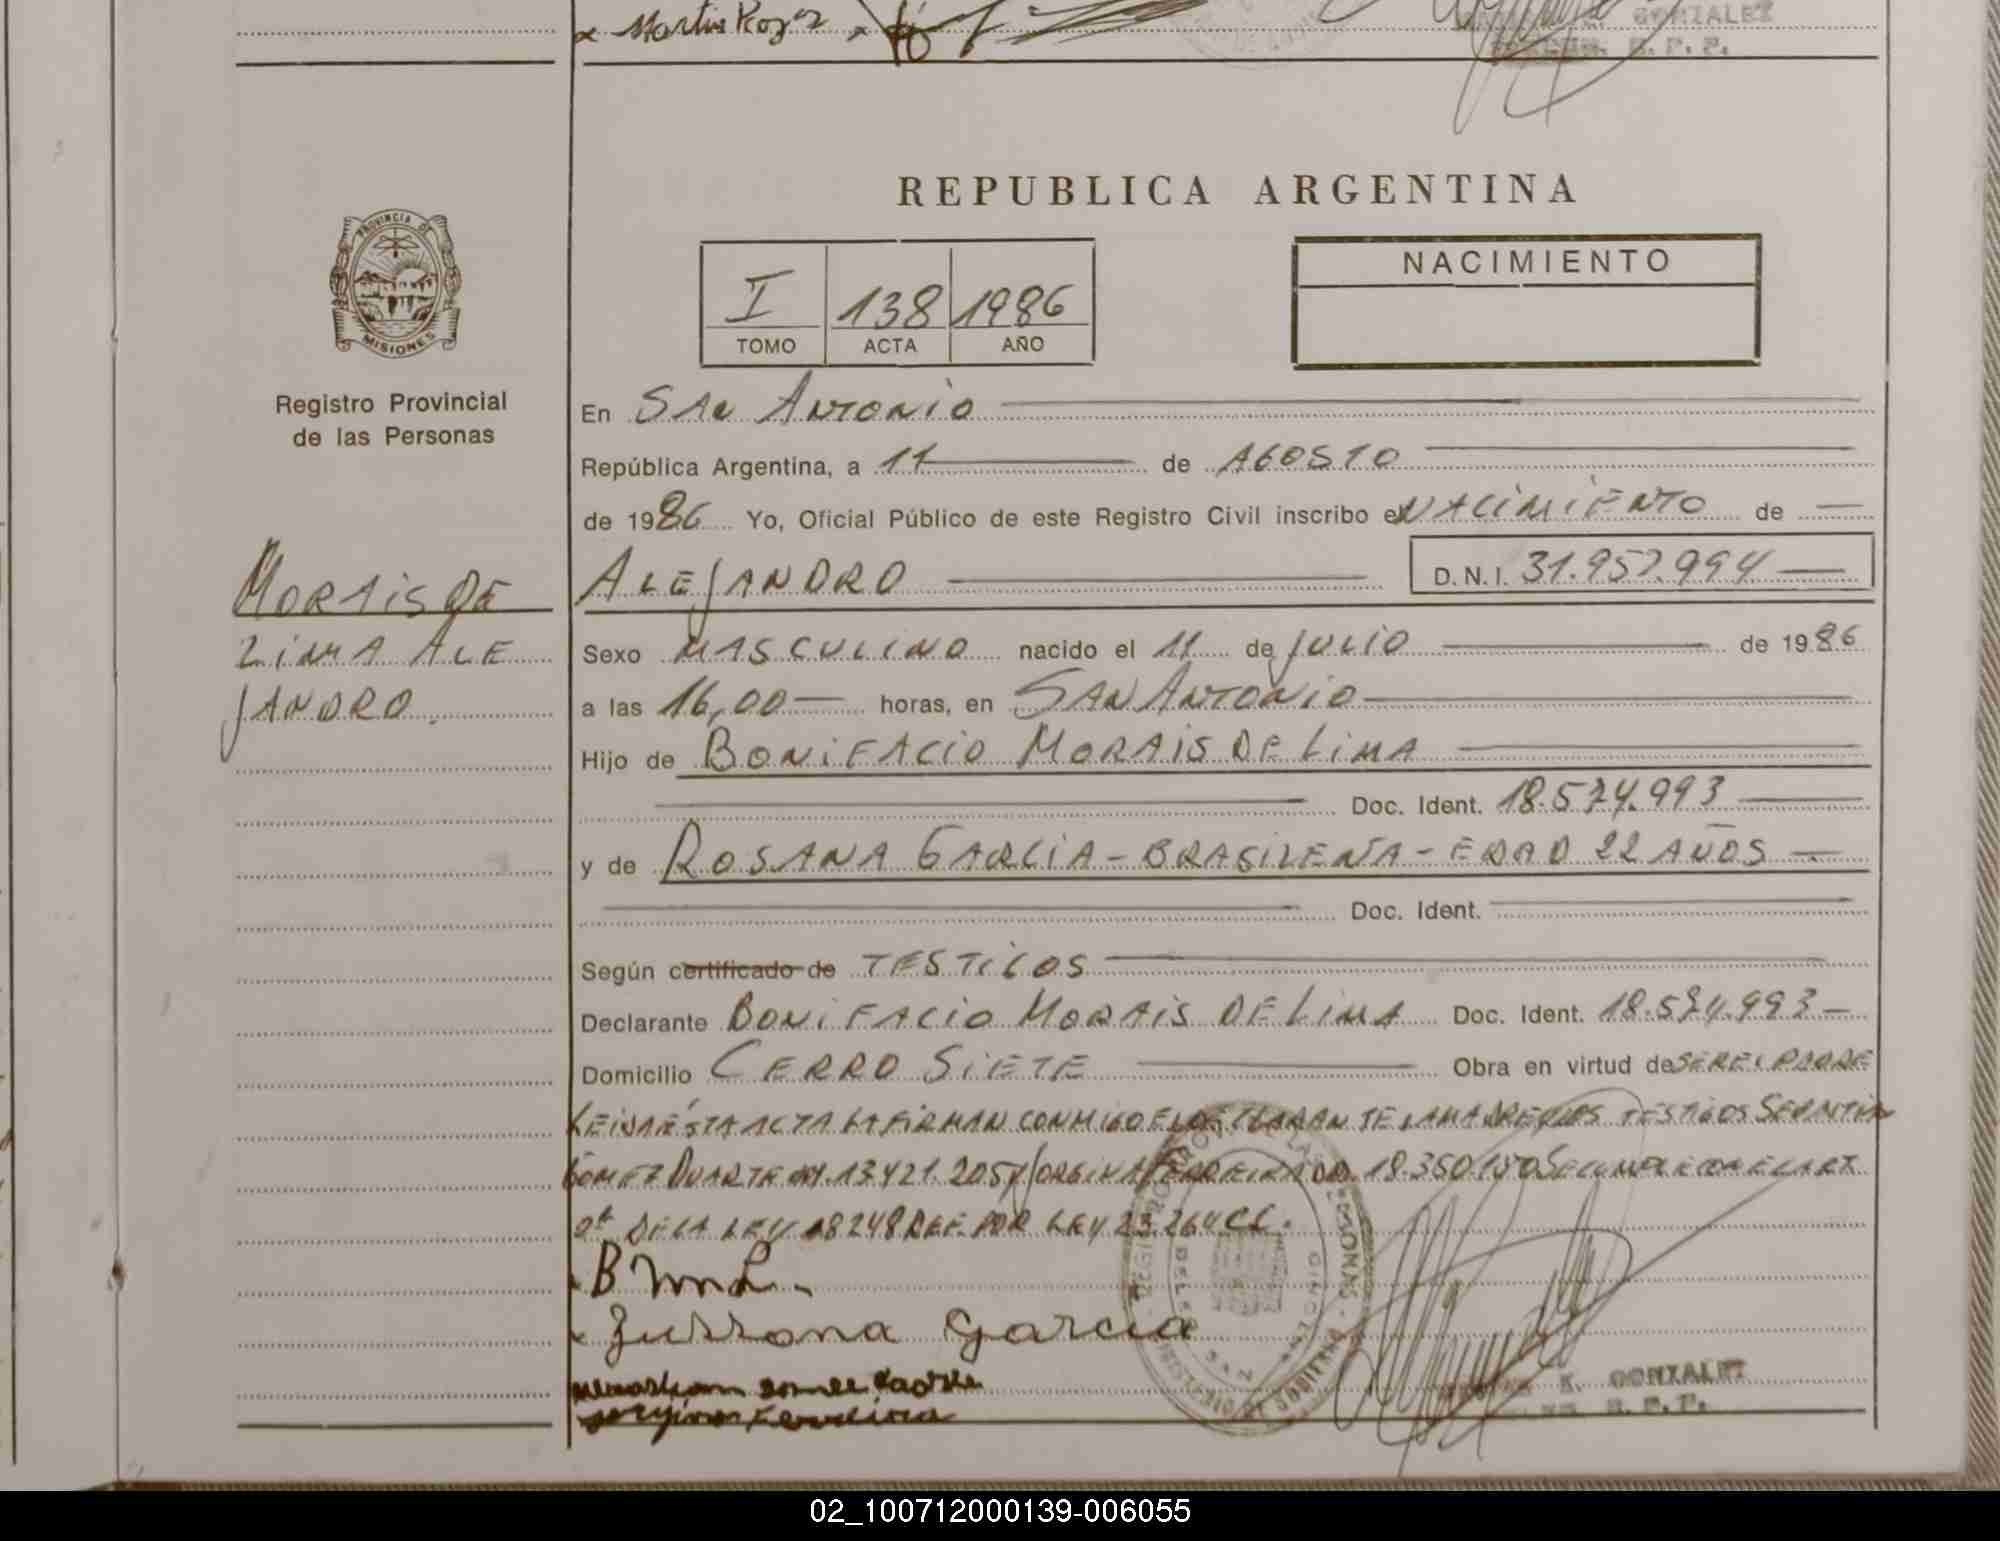 x Martin Roz
GONZALEZ
R. P. P.
REPUBLICA ARGENTINA
PROVINCIA DE
MISIONES
I 138 1986
TOMO ACTA AÑO
NACIMIENTO
Registro Provincial
de las Personas
En SAN ANTONIO
República Argentina, a 11 de AGOSTO
de 1986 Yo, Oficial Público de este Registro Civil inscribo el NACIMIENTO de
MORAIS DE
LIMA ALE
JANDRO.
ALEJANDRO D.N.I. 31.957.994
Sexo MASCULINO nacido el 11 de JULIO de 1986
a las 16,00 horas, en SAN ANTONIO
Hijo de BONIFACIO MORAIS DE LIMA
Doc. Ident. 18.574.993
y de ROSANA GARCIA - BRASILEÑA - EDAD 22 AÑOS
Doc. Ident.
Según certificado de TESTIGOS
Declarante BONIFACIO MORAIS DE LIMA Doc. Ident. 18.574.993
Domicilio CERRO SIETE Obra en virtud de SER EL PADRE
LEIDA ÉSTA ACTA LA FIRMAN CONMIGO EL DECLARANTE, LA MADRE Y LOS TESTIGOS
GOMEZ DUARTE 13.421.205 Y JORGINA FERREIRA 18.350.150
DE LA LEY 18248 REF. POR LEY 23.264 CC.
B M D L.
x Zussona Garcia
K. GONZALEZ
R. P. P.
02_100712000139-006055